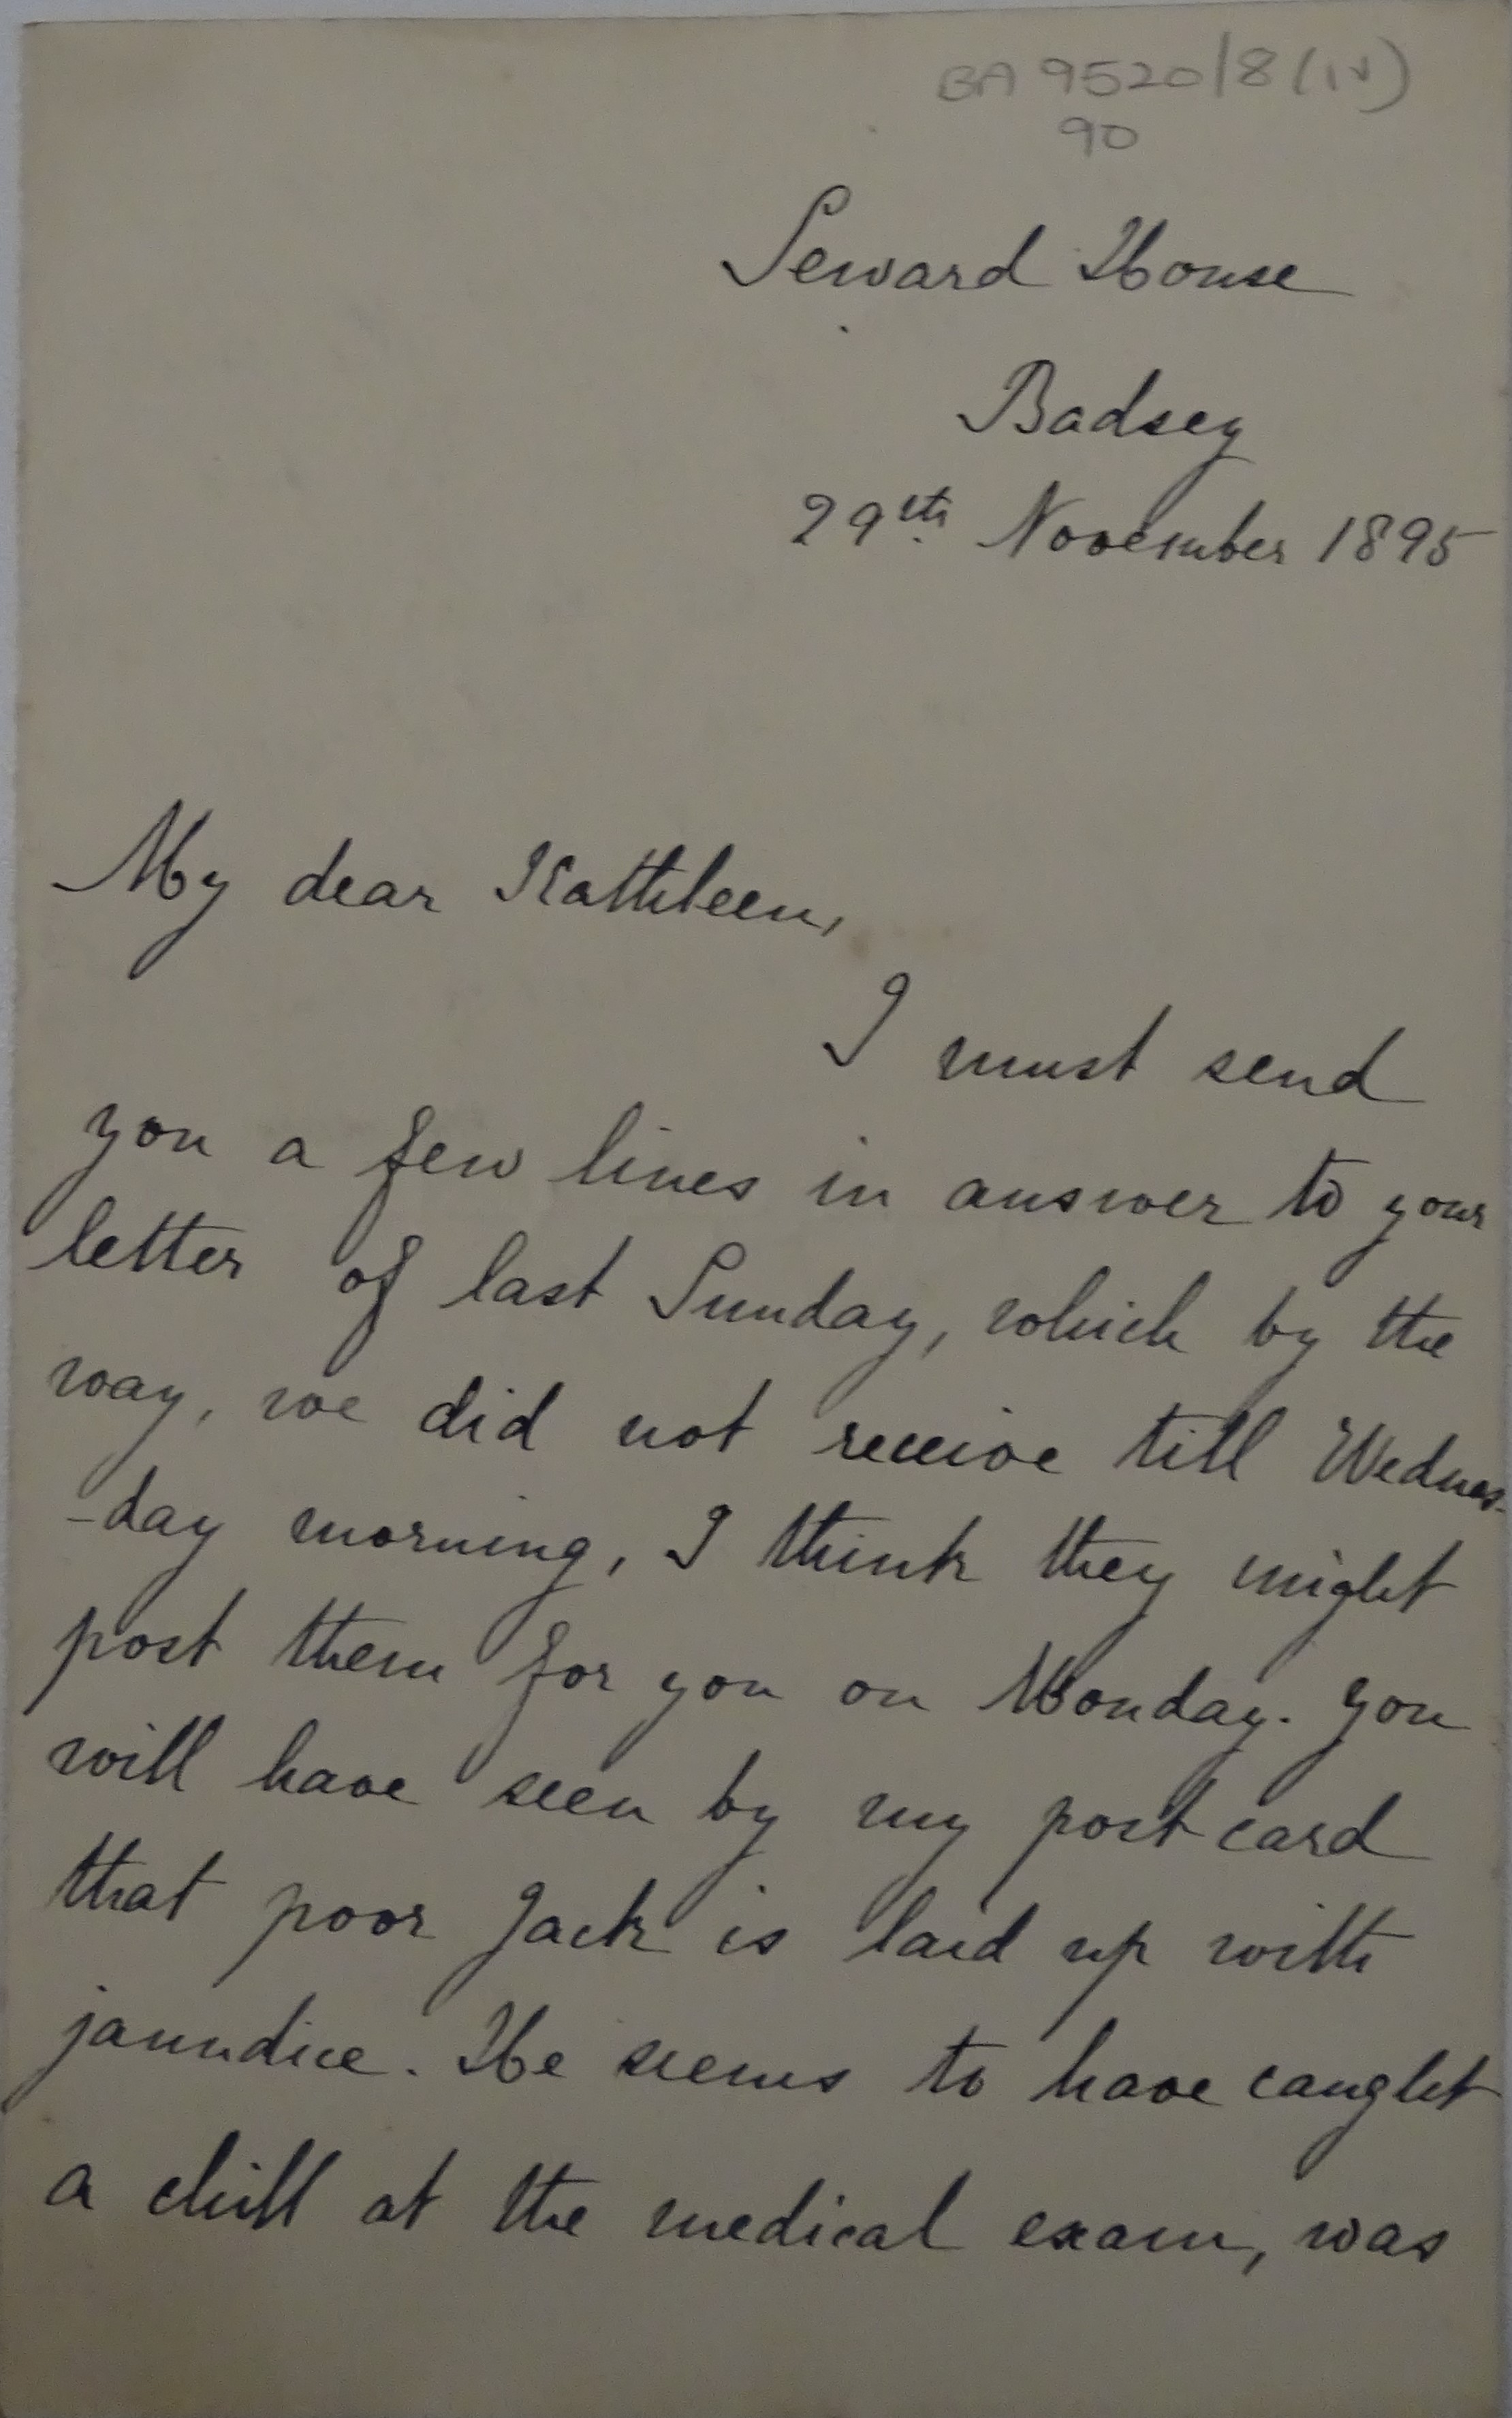 BA 9520/8(iv)
90
Seward House
Badsey
29th November 1895
My dear Kathleen,
I must send
you a few lines in answer to your
letter of last Sunday, which by the
way, we did not receive till Wednes-
-day morning, I think they might
post them for you on Monday. You
will have seen by my post card
that poor Jack is laid up with
jaundice. He seems to have caught
a chill at the medical exam, was